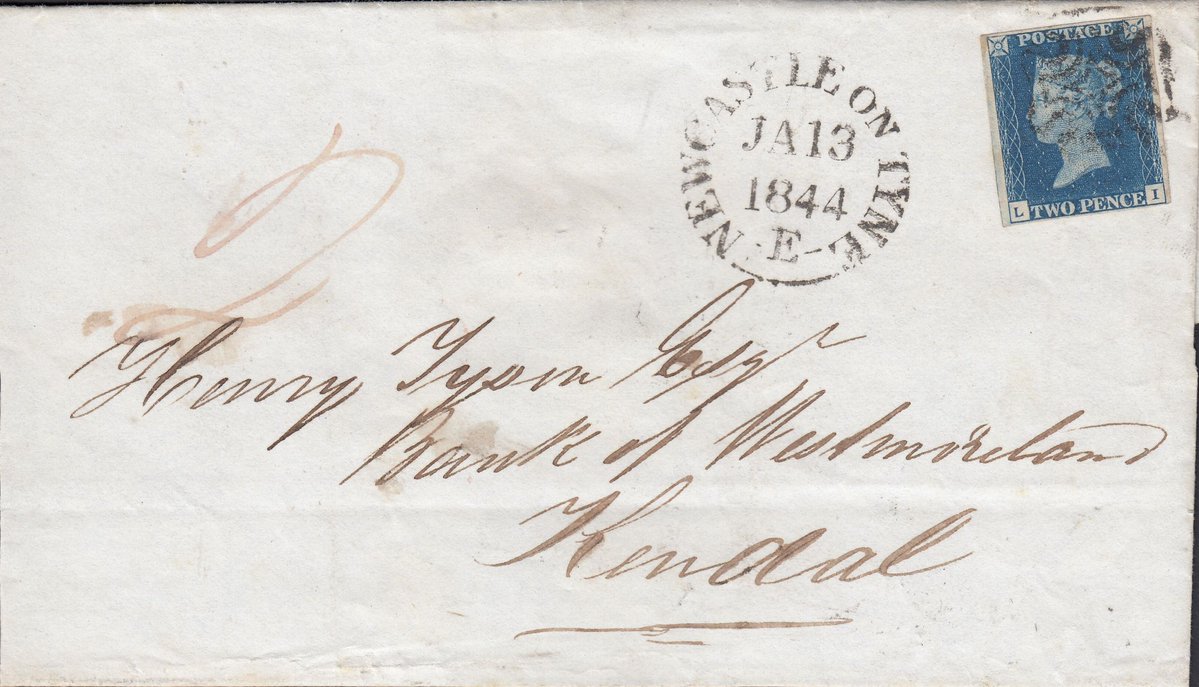 POSTAGE
L TWO PENCE I
NEWCASTLE ON TYNE
JA 13
1844
E
2
Henry Tyson Esqr
Bank of Westmoreland
Kendal